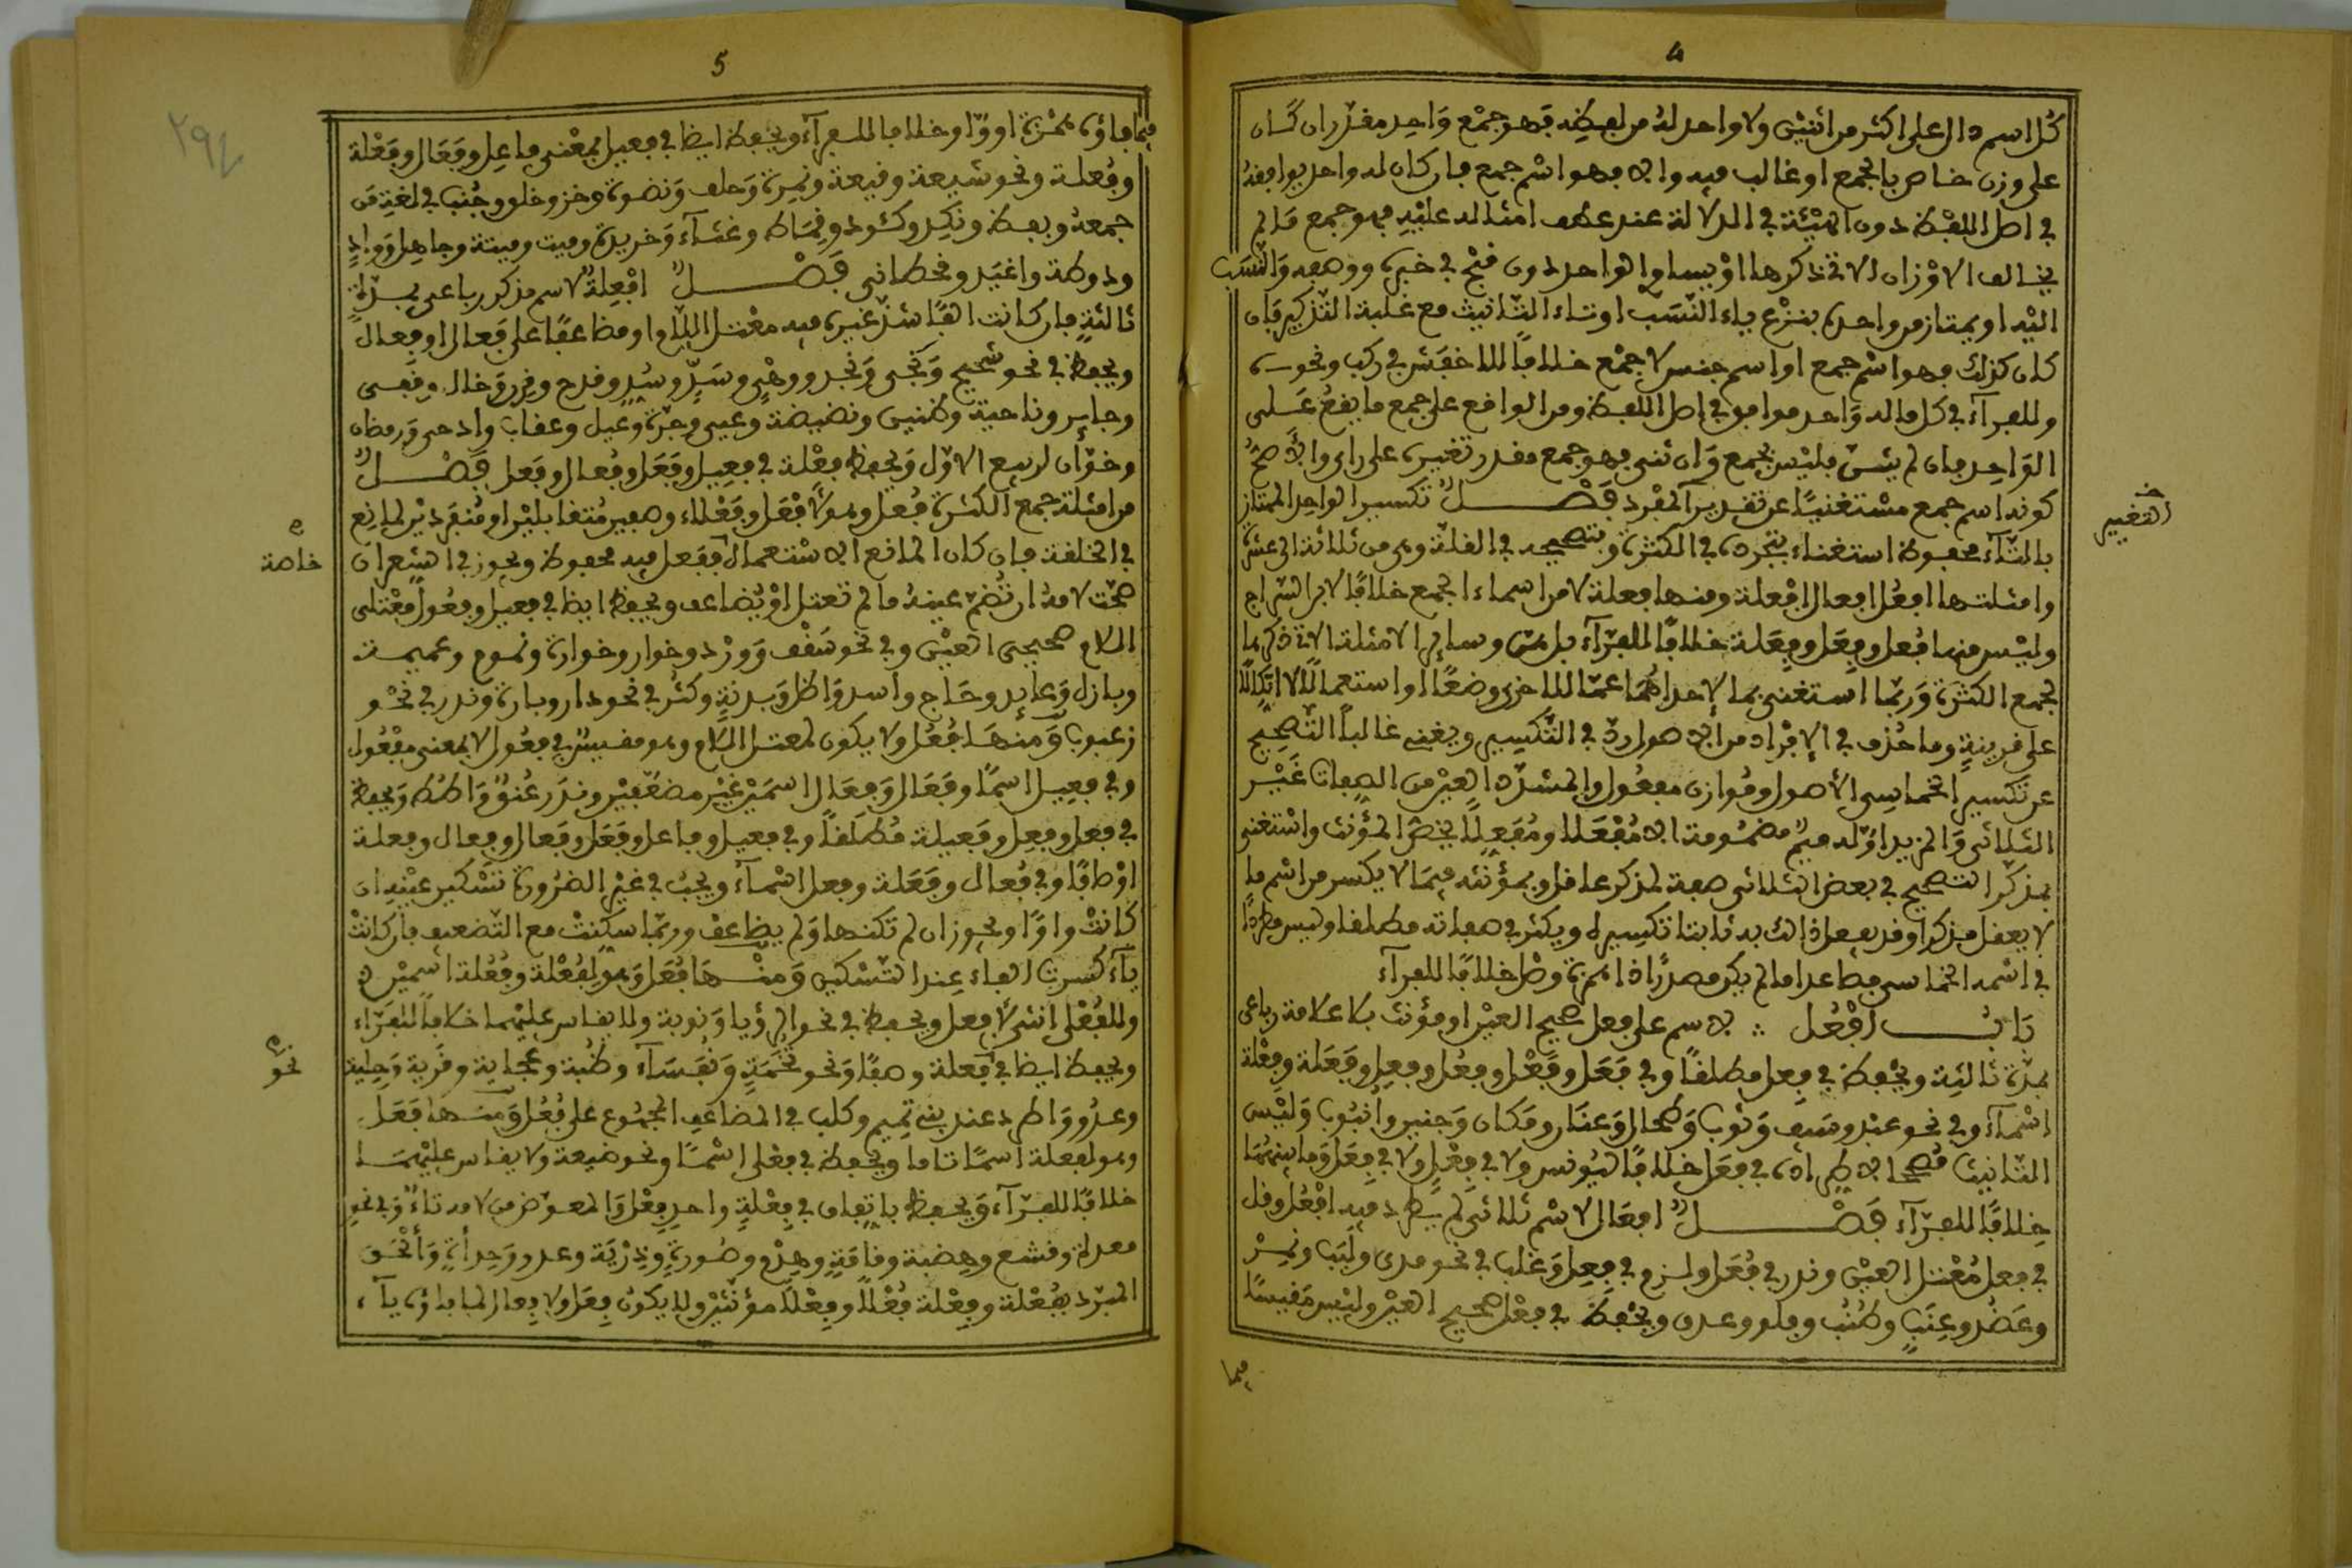 4
كل اسم دال على اكثر من اثنين ولا واحد له من لفظه فهو جمع واحد مقدر ان كان
على وزن خاص بالجمع او غالب فيه والا فهو اسم جمع فان كان له واحد يوافقه
في اصل اللفظ دون الهيئة في الدلالة عند عطف امثاله عليه فهو جمع ما لم
يخالف الاوزان الاتي ذكرها او يساو الواحد دون قبح في خبره ووصفه والنسب
اليه او يمتاز من واحده بنزع ياء النسب او تاء التانيث مع غلبة التذكير فان
كان كذلك فهو اسم جمع او اسم جنس لا جمع خلافا للاخفش في ركب ونحوه
وللفراء في كل ما له واحد موافق في اصل اللفظ ومن الواقع على جمع ما يقع على
الواحد فان لم يثن فليس بجمع وان ثني فهو جمع مقدر تغييره على راى والاصح
كونه اسم جمع مستغنيا عن تقدير المفرد فصل تكسير الواحد الممتاز
بالتاء محفوظ استغناء بتجرده في الكثرة وبتصحيحه في القلة وهي من ثلاثة الى عشرة
وامثلتها افعل افعال افعلة ومنها فعلة لا من اسماء الجمع خلافا لابن السراج
وليس منها فعل وفعل وفعلة خلافا للفراء بل هي وساير الامثلة الاتي ذكرها
لجمع الكثرة وربما استغنى بما لاحداهما عما للاخرى وضعا او استعمالا اتكالا
على قرينة وما حذف في الافراد من الاصول رد في التكسير ويغني غالبا التصحيح
عن تكسير الخماسي الاصول وموازن مفعول والمشدد العين من الصفات غير
الثلاثي والمزيد اوله ميم مضمومة الا مفعلا ومفعلا يخص المؤنث واستغني
بمذكر التصحيح في بعض الثلاثي صفة لمذكر عاقل وبمؤنثه فيما لا يكسر من اسم ما
لا يعقل مذكرا وقد يفعل ذلك به ثابتا تكسيره ويكثر في صفاته مطلقا وليس مطردا
في اسمه الخماسي فصاعدا ما لم يكن مصدرا ذا همزة وصل خلافا للفراء
باب افعل ∴ لاسم على فعل صحيح العين او مؤنث بلا علامة رباعي
بمدة ثالثة ويحفظ في فعل مطلقا وفي فعل وفعل وفعل وفعل وفعلة وفعلة
اسماء وفي نحو عبد وسيف وثوب وطحال وعتار ومكان وجنين وانبوب وليس
التانيث مصححا لاطراده في فعل خلافا ليونس ولا في فعل ولا في فعل وما بينهما
خلافا للفراء فصل افعال لاسم ثلاثي لم يطرد فيه افعل وقل
في فعل معتل العين وندر في فعل ولزم في فعل وغلب في نحو مدى ولبب ونمر
وعضد وعنب وطنب وفلو وعدو ويحفظ في فعل صحيح العين وليس مقيسا
فيما
خـ التغيير
5
فيما فاؤه همزة او واو خلافا للفراء ويحفظ ايضا في فعيل بمعنى فاعل وفعال وفعلة
وفعلة ونحو شيعة وقيعة ونمرة وجلف ونضوة وحر وخلو وجنب في لغة من
جمعه ويقظ ونكد وكئود وقماط وغثاء وخريدة وميت وميتة وجاهل وواد
وذوطة واغيد وقحطاني فصل افعلة لاسم مذكر رباعي بمدة
ثالثة فان كانت الفا شذ غيره فيه معتل اللام او مضاعفا على فعال او فعال
ويحفظ في نحو شحيح ونجي ونجد ووهي وسد وسد وقدح وقن وخال وقفى
وجايز وناحية وظنين ونضيضة وعيي وجزة وعيل وعقاب وادحي ورمضان
وخوان لربيع الاول ويحفظ فعلة في فعيل وفعل وفعال وفعل فصل
من امثلة جمع الكثرة فعل وهو لافعل وفعلاء وصفين متقابلين او منفردين لمانع
في الخلقة فان كان المانع الاستعمال ففعل فيه محفوظ ويجوز في الشعر ان
صحت لامه ان تضم عينه ما لم تعتل او يضاعف ويحفظ ايضا في فعيل وفعول معتلي
اللام صحيحي العين وفي نحو سقف وورد وخوار وخوارة ونموم وعميمة
وبازل وعايذ وحاج واسد واظل وبدنة وكثر في نحو دار وبارة وندر في نحو
زعبوب ومنها فعل ولا يكون لمعتل اللام وهو مقيس في فعول لا بمعنى مفعول
وفي فعيل اسما وفعال وفعال اسمين غير مضعفين وندر عنق واطط ويحفظ
في فعل وفعل وفعيلة مطلقا وفي فعيل وفاعل وفعل وفعال وفعال وفعلة
اوصافا وفي فعال وفعلة وفعل اسماء ويجب في غير الضرورة تسكير عينه ان
كانت واوا ويجوز ان لم تكنها ولم يضاعف وربما سكنت مع التضعيف فان كانت
ياء كسرت الفاء عند التسكين ومنها فعل وهو لفعلة وفعلة اسمين و
وللفعلى انثى لافعل ويحفظ في نحو الرؤيا ونوبة ولا يقاس عليهما خلافا للفراء
ويحفظ ايضا في فعلة وصفا ونحو تخمة ونفساء وظبة وعجاية وقرية وحلية
وعدو واطرد عند بني تميم وكلب في المضاعف المجموع على فعل ومنها فعل
وهو لفعلة اسما تاما ويحفظ في فعلى اسما ونحو ضيعة ولا يقاس عليهما
خلافا للفراء ويحفظ باتفاق في فعلة واحد فعل والمعوض من لامه تاء وفي نحو
معدة وقشع وهضبة وقامة وهدم وصورة وذربة وعدو وحدأة والحق
المبرد بفعلة وفعلة فعلا وفعلا مؤنثين ولا يكون فعل ولا فعال لما فاؤه ياء
خاصة
نحو
٢٩٤